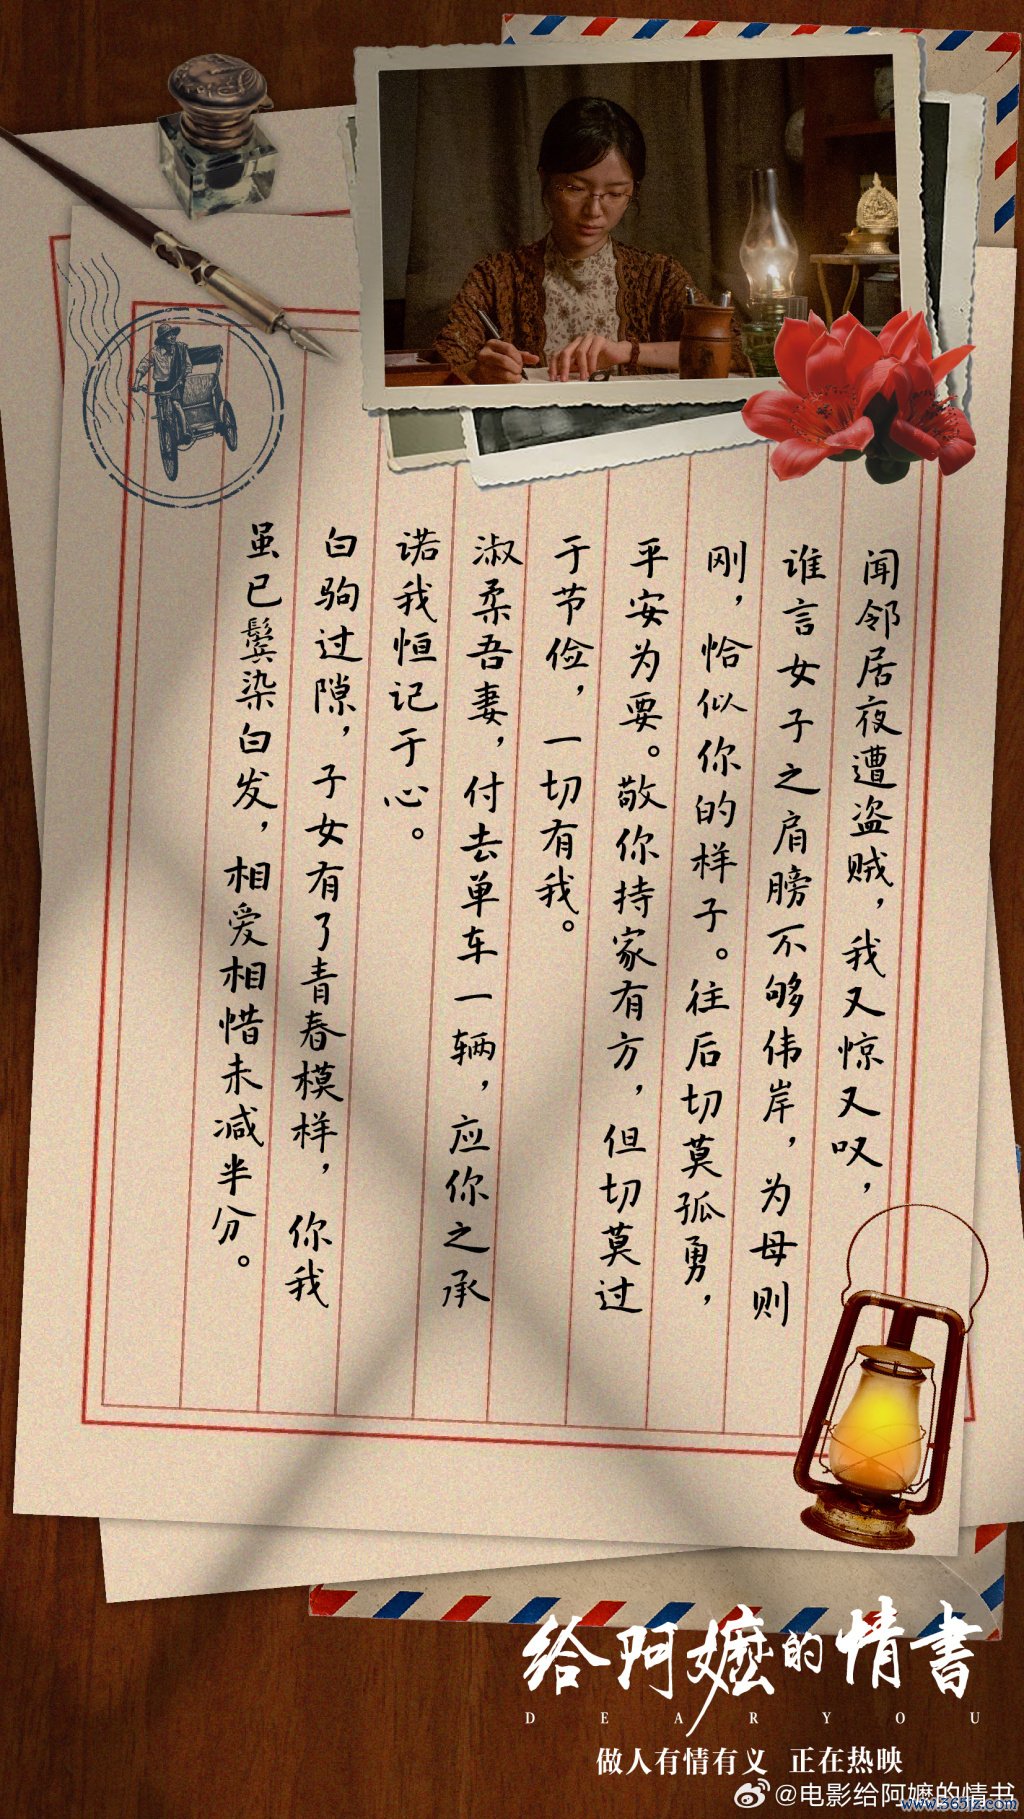 闻邻居夜遭盗贼，我又惊又叹，
谁言女子之肩膀不够伟岸，为母则
刚，恰似你的样子。往后切莫孤勇，
平安为要。敬你持家有方，但切莫过
于节俭，一切有我。
淑柔吾妻，付去单车一辆，应你之承
诺我恒记于心。
白驹过隙，子女有了青春模样，你我
虽已鬓染白发，相爱相惜未减半分。
给阿嬷的情書
DEAR YOU
做人有情有义 正在热映
@电影给阿嬷的情书
www.365jz.com